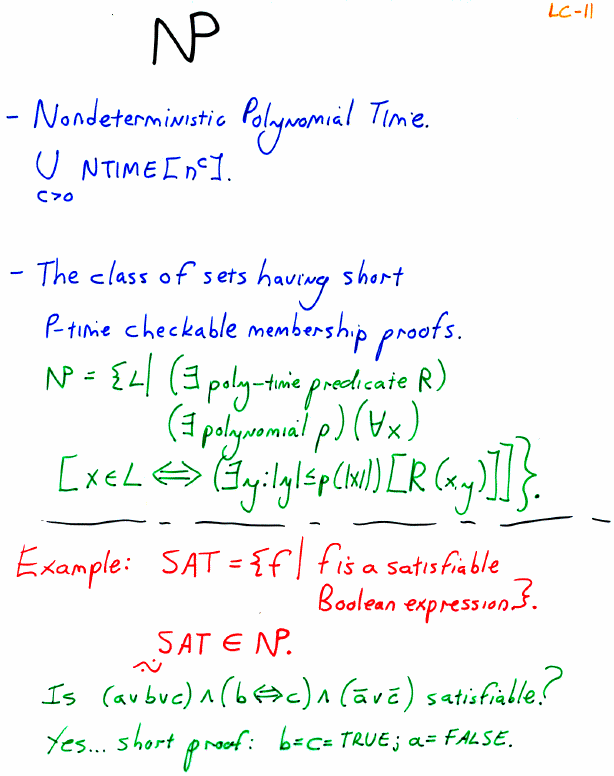 LC-11
NP
- Nondeterministic Polynomial Time.
⋃ NTIME[n^c].
c>0
- The class of sets having short
P-time checkable membership proofs.
NP = {L| (∃ poly-time predicate R)
(∃ polynomial p) (∀x)
[x∈L ⟺ (∃y:|y|≤p(|x|)) [R(x,y)]]}.
Example: SAT = {f | f is a satisfiable
Boolean expression}.
SAT ∈ NP.
Is (a∨b∨c) ∧ (b⟺c) ∧ (ā∨c̄) satisfiable?
Yes... short proof: b=c=TRUE; a=FALSE.